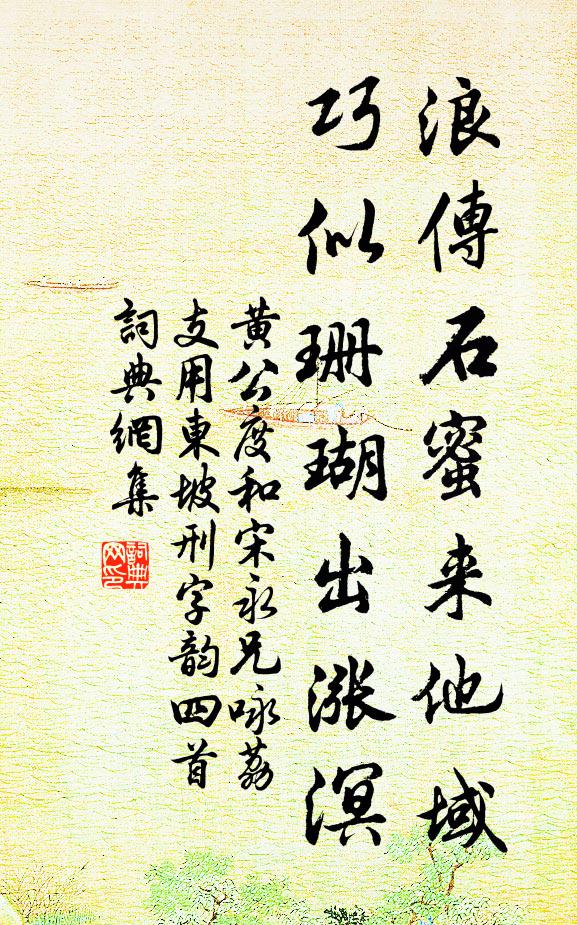 浪傳石蜜来他域
巧似珊瑚出漲溟
黄公度和宋永兄咏荔
支用東坡刑字韵四首
詞典網集
詞典网印